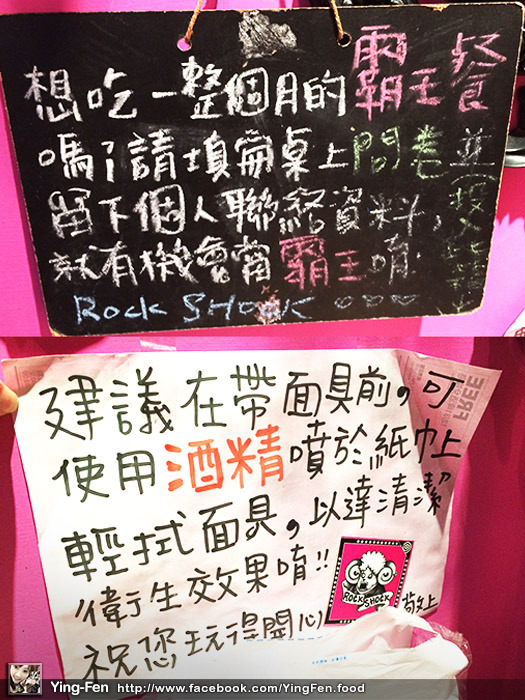 想吃一整個月的霸王餐
嗎？請填寫桌上問卷並
留下個人聯絡資料，投
就有機會當霸王唷
ROCK SHOCK
建議在帶面具前，可
使用酒精噴於紙巾上
輕拭面具，以達清潔
衛生效果唷!!
祝您玩得開心
ROCK SHOCK
敬上
FREE
Ying-Fen http://www.facebook.com/YingFen.food